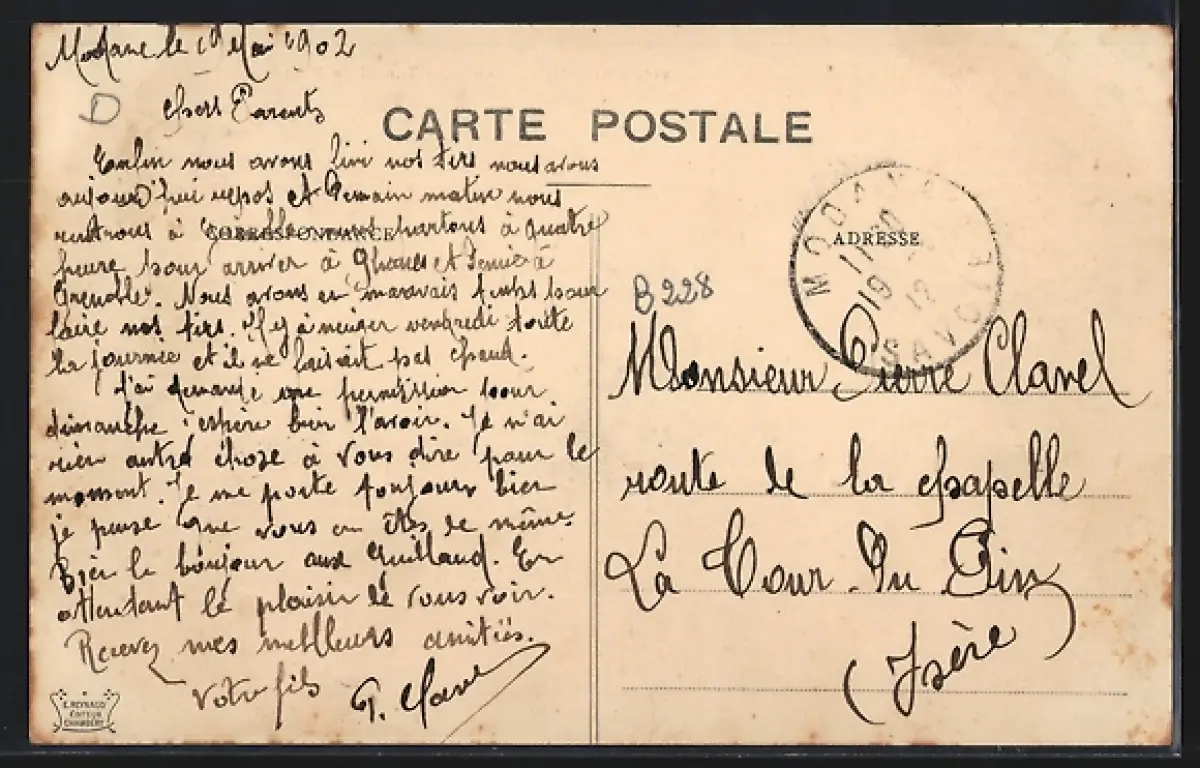 Modane le 19 Mai 1902
Chers Parents
CARTE POSTALE
Enfin nous avons fini nos tirs nous avons
aujourd'hui repos et demain matin nous
rentrons à nous partons à quatre
heure pour arriver à et demie à
Grenoble. Nous avons eu mauvais temps pour
faire nos tirs. Il y à neiger vendredi toute
la journée et il ne faisait pas chaud.
J'ai demandé une permission pour
dimanche j'espère bien l'avoir. Je n'ai
rien autre chose à vous dire pour le
moment. Je me porte toujours bien
je pense que vous en êtes de même.
Bien le bonjour aux Guillaud. En
attendant le plaisir de vous voir.
Recevez mes meilleurs amitiés.
Votre fils P. Clavel
CORRESPONDANCE
E. REYNAUD
ÉDITEUR
CHAMBÉRY
ADRESSE
MODANE
19
12
SAVOIE
B228
Monsieur Pierre Clavel
route de la chapelle
La Tour du Pin
(Isère)